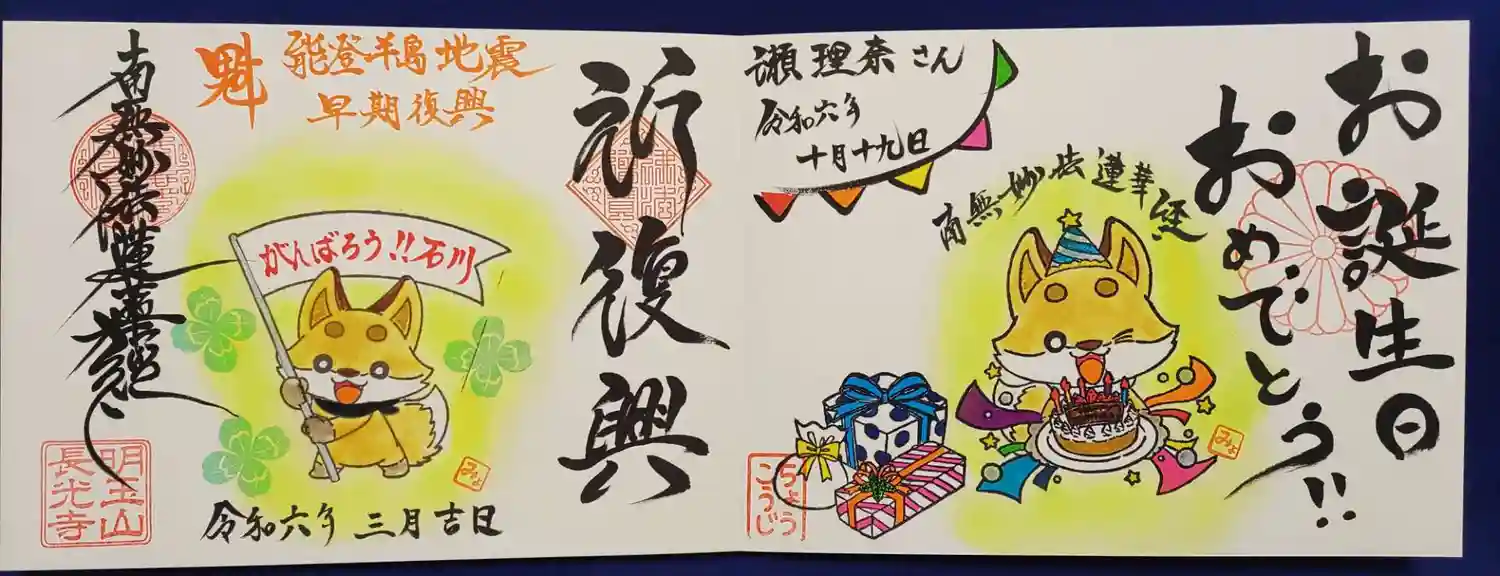 お誕生日
おめでとう!!
南無妙法蓮華経
瀬理奈さん
令和六年
十月十九日
みょ
ちょう
こうじ
祈復興
魁
能登半島地震
早期復興
がんばろう!!石川
みょ
令和六年 三月吉日
南無妙法蓮華経
明王山
長光寺